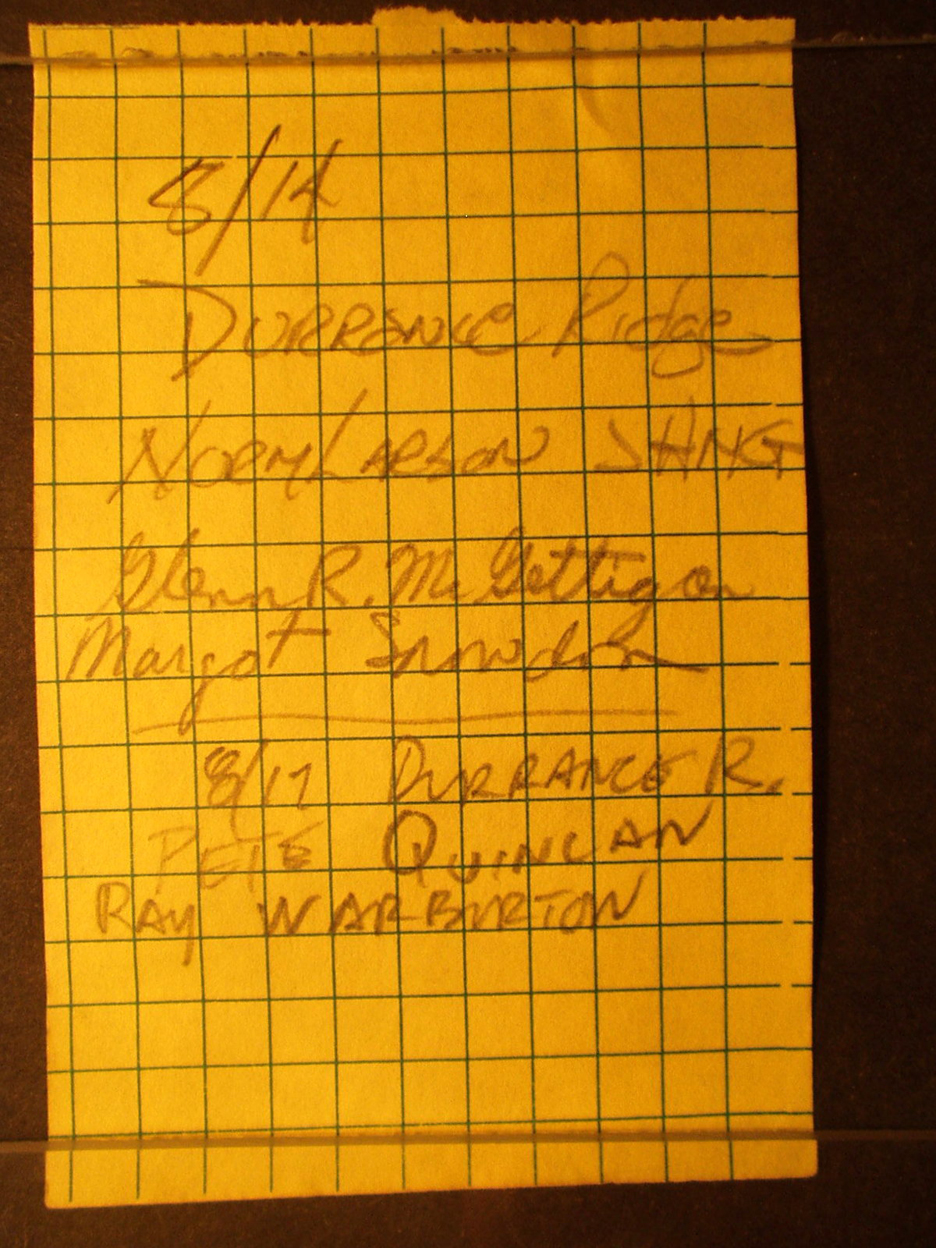 8/14
DURRANCE Ridge
NORM LARSON JHMG
Glenn R. McGettigan
Margot Snowdon
8/17 DURRANCE R.
PETE QUINLAN
RAY WARBURTON